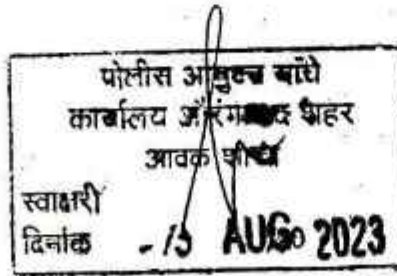 पोलीस आयुक्त यांचे
कार्यालय औरंगाबाद शहर
आवक
स्वाक्षरी
दिनांक - AUG 2023